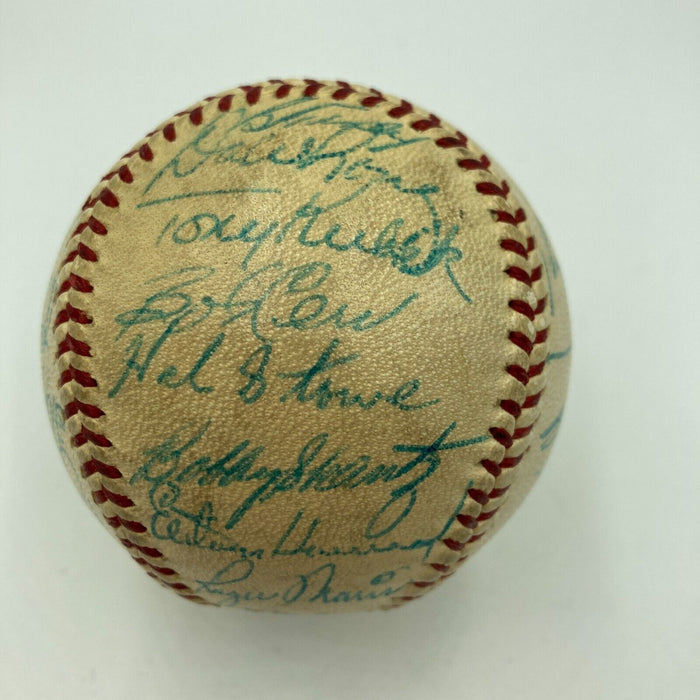 Tony Kubek
Bob Cerv
Hal Stowe
Bobby Shantz
Elston Howard
Roger Maris